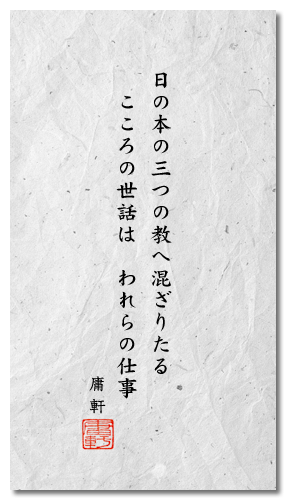 日の本の三つの教へ混ざりたる
こころの世話は　われらの仕事
庸軒
庸軒